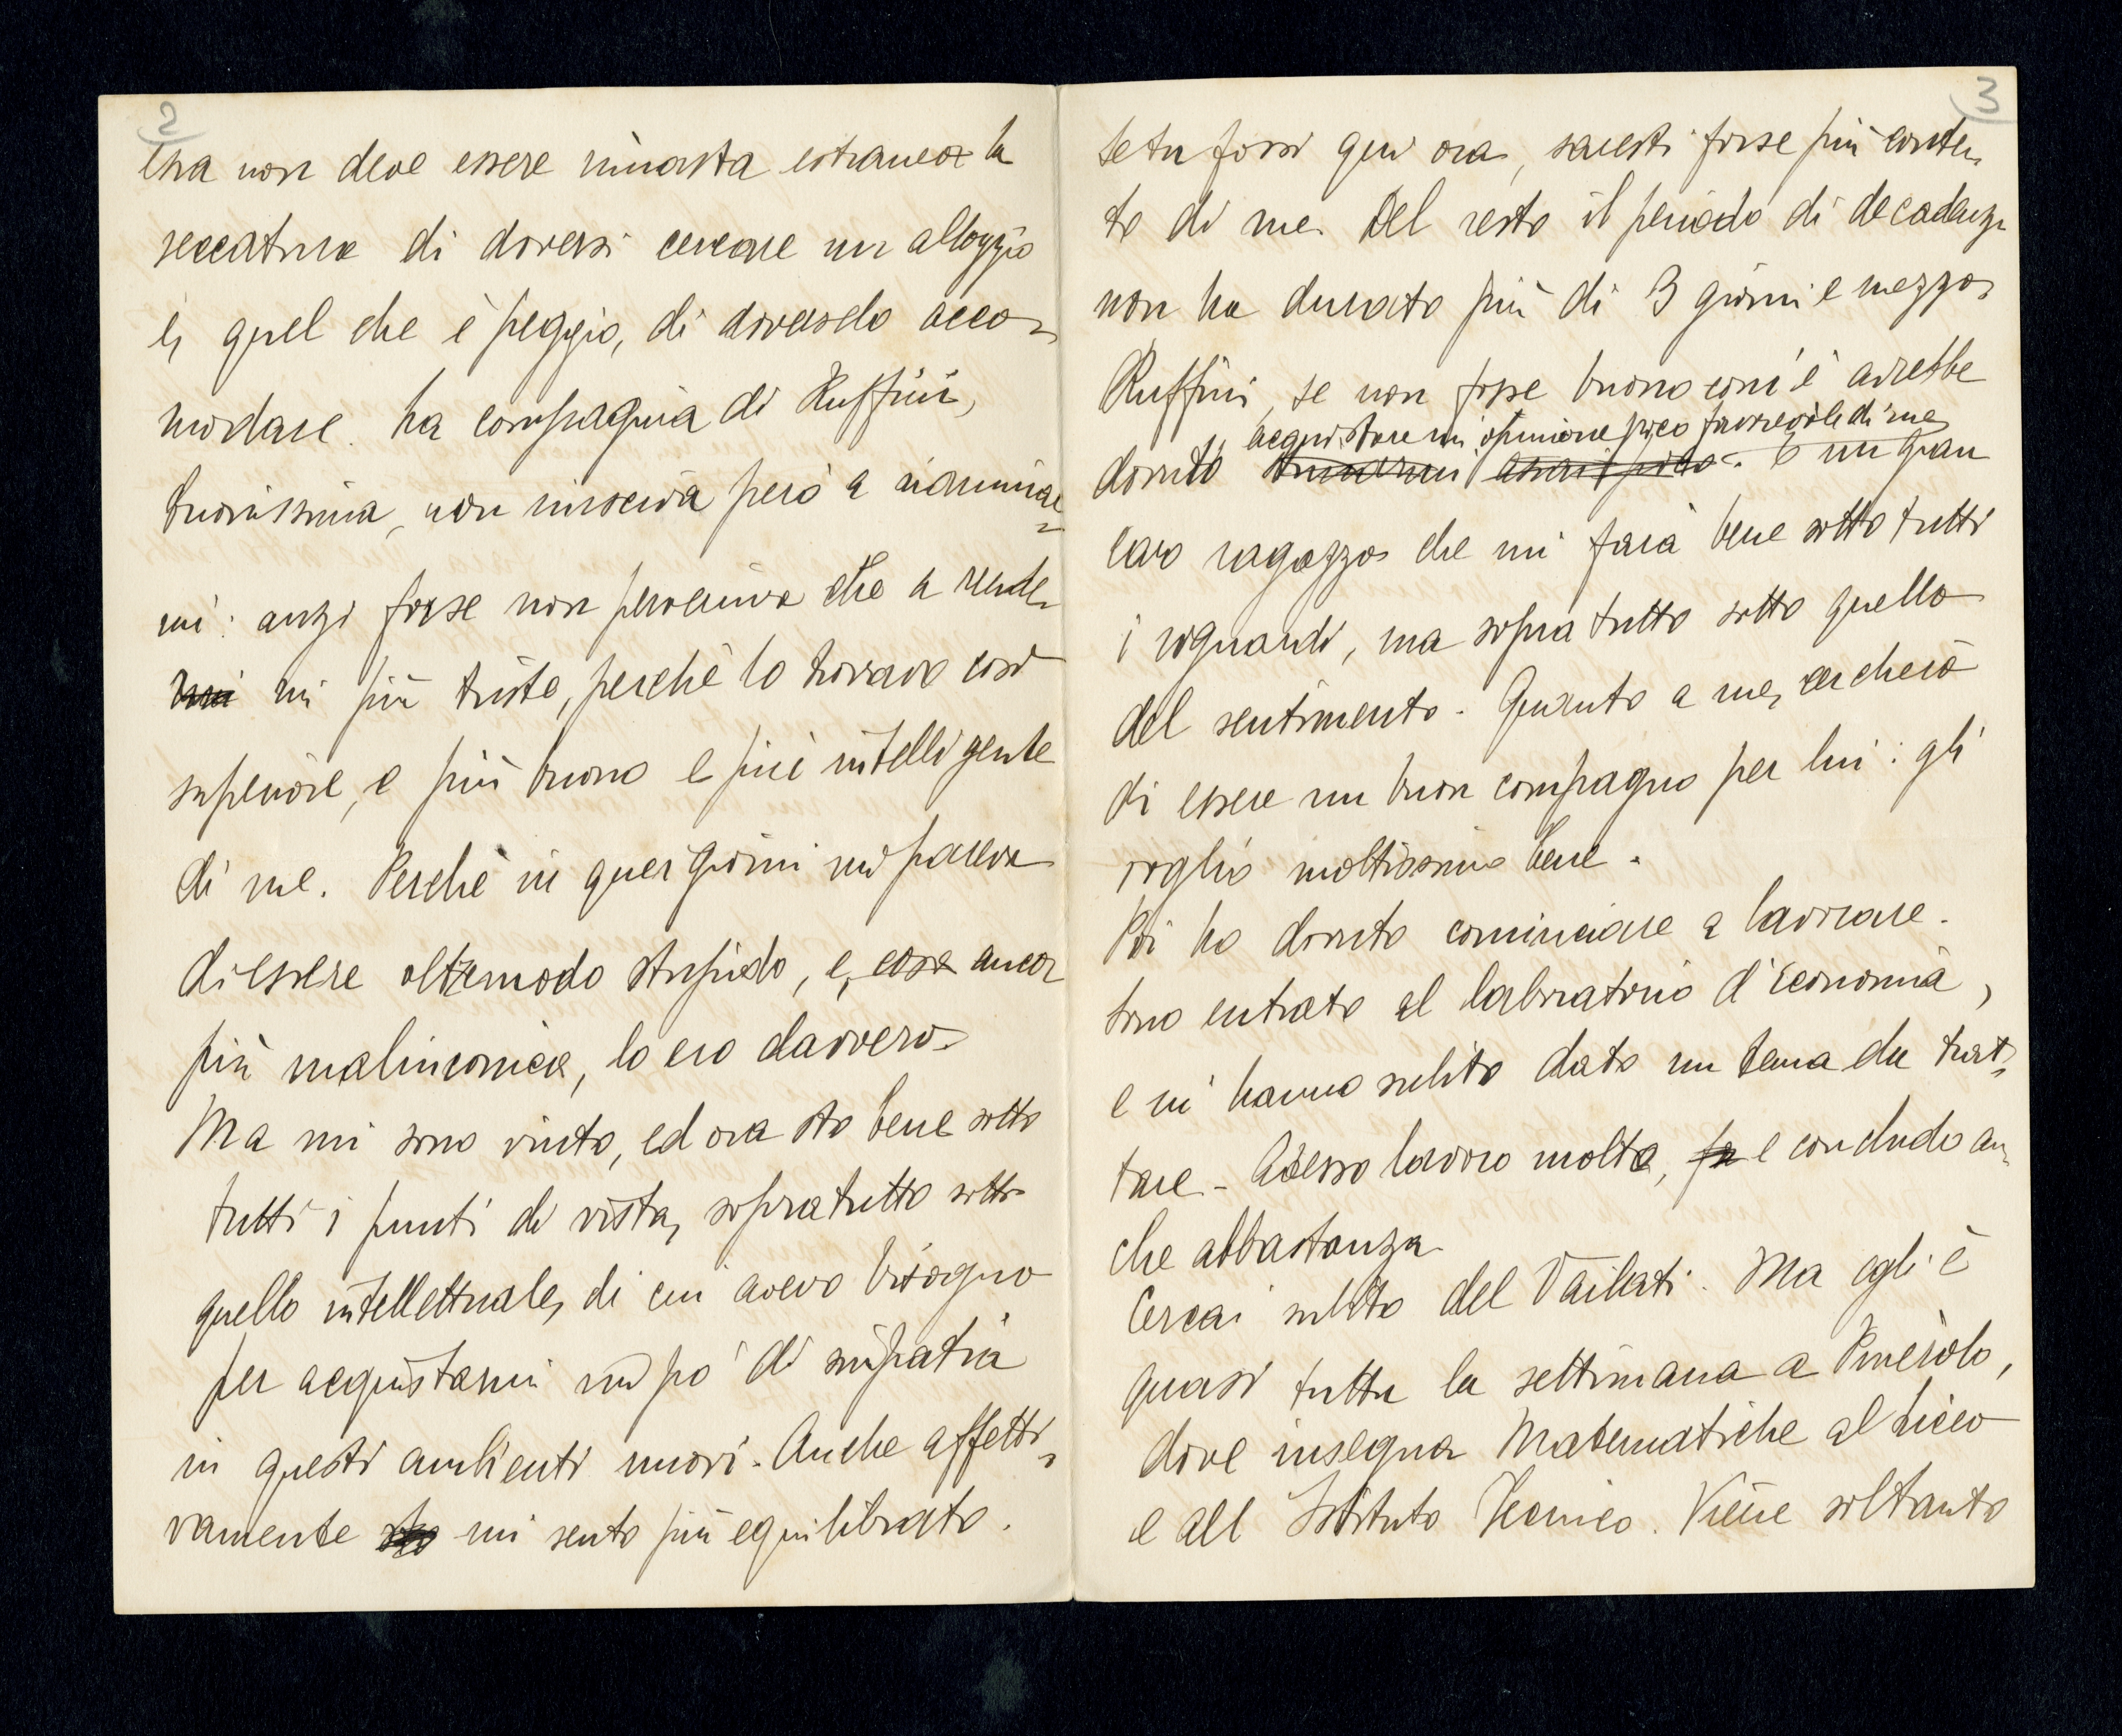 2
essa non deve essere rimasta estranea la
seccatura di doversi cercare un alloggio
e, quel che è peggio, di doverselo acco-
modare. La compagnia di Ruffini,
buonissima, non riusciva però a rianimar-
mi: anzi forse non perveniva che a render-
mi più triste, perchè lo trovavo così
superiore, e più buono e più intelligente
di me. Perchè in quei giorni mi pareva
di essere oltremodo stupido, e, cosa ancor
più malinconica, lo ero davvero.
Ma mi sono vinto, ed ora sto bene sotto
tutti i punti di vista, sopratutto sotto
quello intellettuale, di cui avevo bisogno
per acquistarmi un po' di simpatia
in questi ambienti nuovi. Anche affetti-
vamente sto mi sento più equilibrato.
3
Se tu fossi qui ora, saresti forse più conten-
to di me. Del resto il periodo di decadenza
non ha durato più di 3 giorni e mezzo.
Ruffini, se non fosse buono com'è avrebbe
acquistare un'opinione poco favorevole di me
dovuto stimarmi assai poco. È un gran
caro ragazzo che mi farà bene sotto tutti
i riguardi, ma sopra tutto sotto quello
del sentimento. Quanto a me, cercherò
di essere un buon compagno per lui: gli
voglio moltissimo bene.
Poi ho dovuto cominciare a lavorare.
Sono entrato al laboratorio d'Economia,
e mi hanno subito dato un tema da trat-
tare. Adesso lavoro molto, fa e concludo an-
che abbastanza.
Cercai subito del Vailati. Ma egli è
quasi tutta la settimana a Pinerolo,
dove insegna Matematiche al Liceo
e all Istituto Tecnico. Viene soltanto